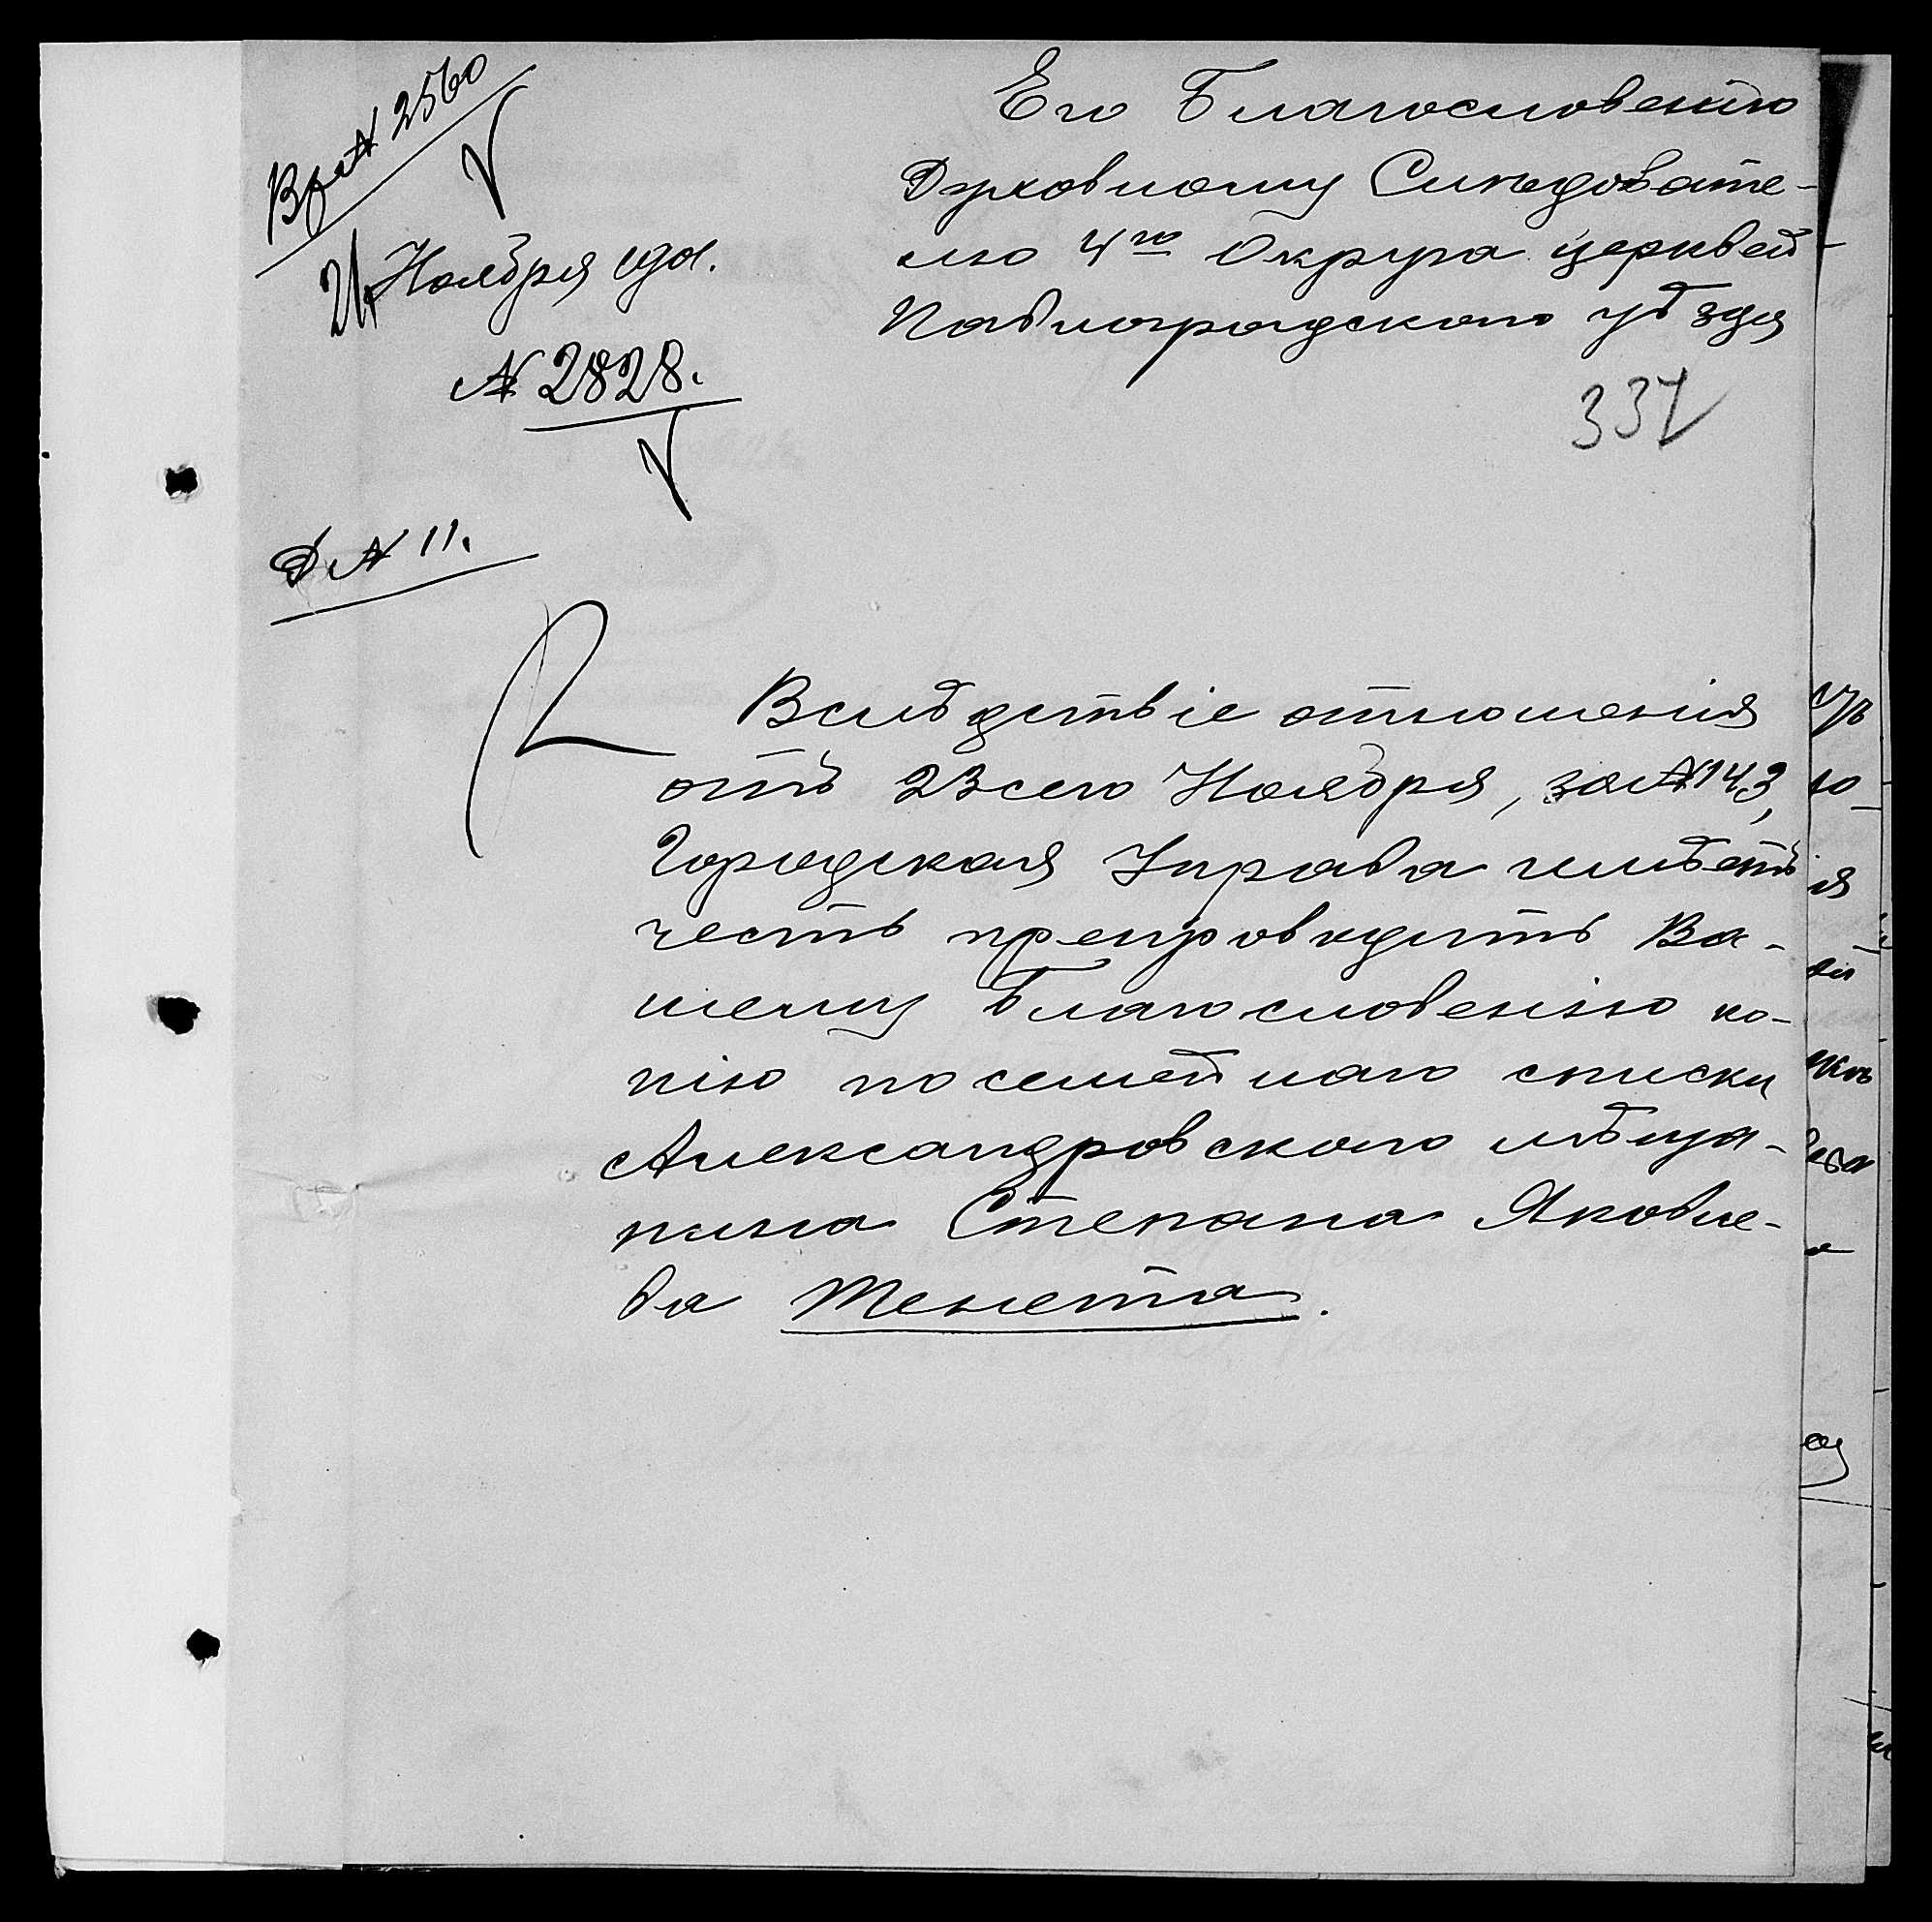 Вх. № 2560
24 Ноября 190 г.
№ 2828.
Д № 11.
Его Благословенію
Духовному Слѣдовате-
лю 4го Округа церквей
Павлоградскаго уѣзда
337
Вслѣдствіе отношенія
отъ 23 сего Ноября, за № 143,
Городская Управа имѣетъ
честь препроводить Ва-
шему Благословенію ко-
пію посемейнаго списка
Александровскаго мѣща-
нина Степана Яковле-
ва Тенета.